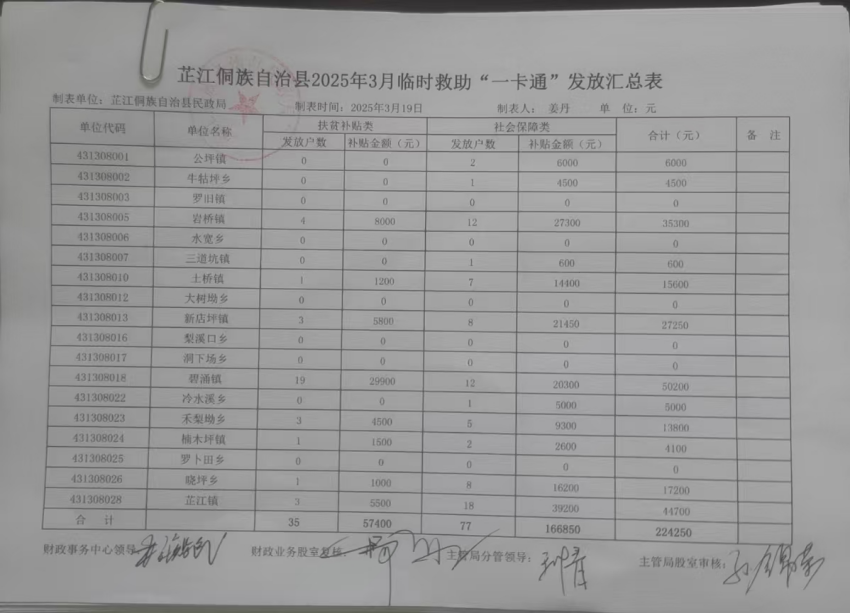 芷江侗族自治县2025年3月临时救助“一卡通”发放汇总表
制表单位：芷江侗族自治县民政局 制表时间：2025年3月19日 制表人： 姜丹 单 位：元
单位代码 单位名称 扶贫补贴类 社会保障类 合计（元） 备 注
发放户数 补贴金额（元） 发放户数 补贴金额（元）
431308001 公坪镇 0 0 2 6000 6000
431308002 牛牯坪乡 0 0 1 4500 4500
431308003 罗旧镇 0 0 0 0 0
431308005 岩桥镇 4 8000 12 27300 35300
431308006 水宽乡 0 0 0 0 0
431308007 三道坑镇 0 0 1 600 600
431308010 土桥镇 1 1200 7 14400 15600
431308012 大树坳乡 0 0 0 0 0
431308013 新店坪镇 3 5800 8 21450 27250
431308016 梨溪口乡 0 0 0 0 0
431308017 洞下场乡 0 0 0 0 0
431308018 碧涌镇 19 29900 12 20300 50200
431308022 冷水溪乡 0 0 1 5000 5000
431308023 禾梨坳乡 3 4500 5 9300 13800
431308024 楠木坪镇 1 1500 2 2600 4100
431308025 罗卜田乡 0 0 0 0 0
431308026 晓坪乡 1 1000 8 16200 17200
431308028 芷江镇 3 5500 18 39200 44700
合 计 35 57400 77 166850 224250
财政事务中心领导： 财政业务股室复核： 主管局分管领导： 主管局股室审核：